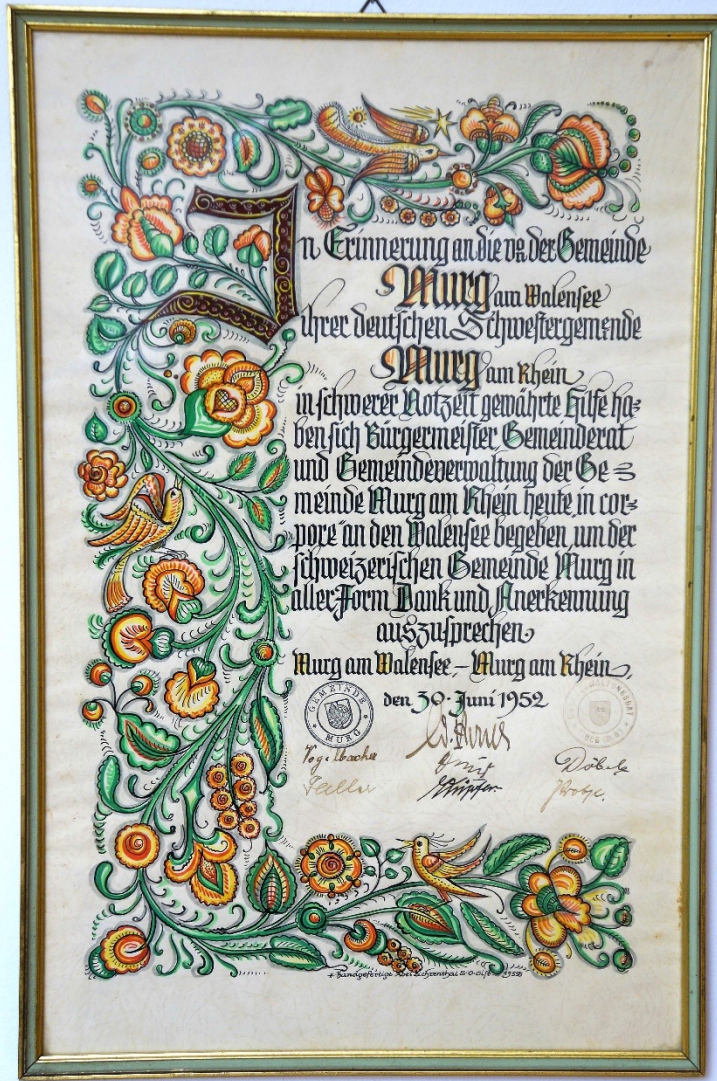 In Erinnerung an die von der Gemeinde
Murg am Walensee
ihrer deutschen Schwestergemeinde
Murg am Rhein
in schwerer Notzeit gewährte Hilfe ha-
ben sich Bürgermeister Gemeinderat
und Gemeindeverwaltung der Ge=
meinde Murg am Rhein heute „in cor-
pore" an den Walensee begeben, um der
schweizerischen Gemeinde Murg in
aller Form Dank und Anerkennung
auszusprechen.
Murg am Walensee – Murg am Rhein,
den 30. Juni 1952
GEMEINDE MURG